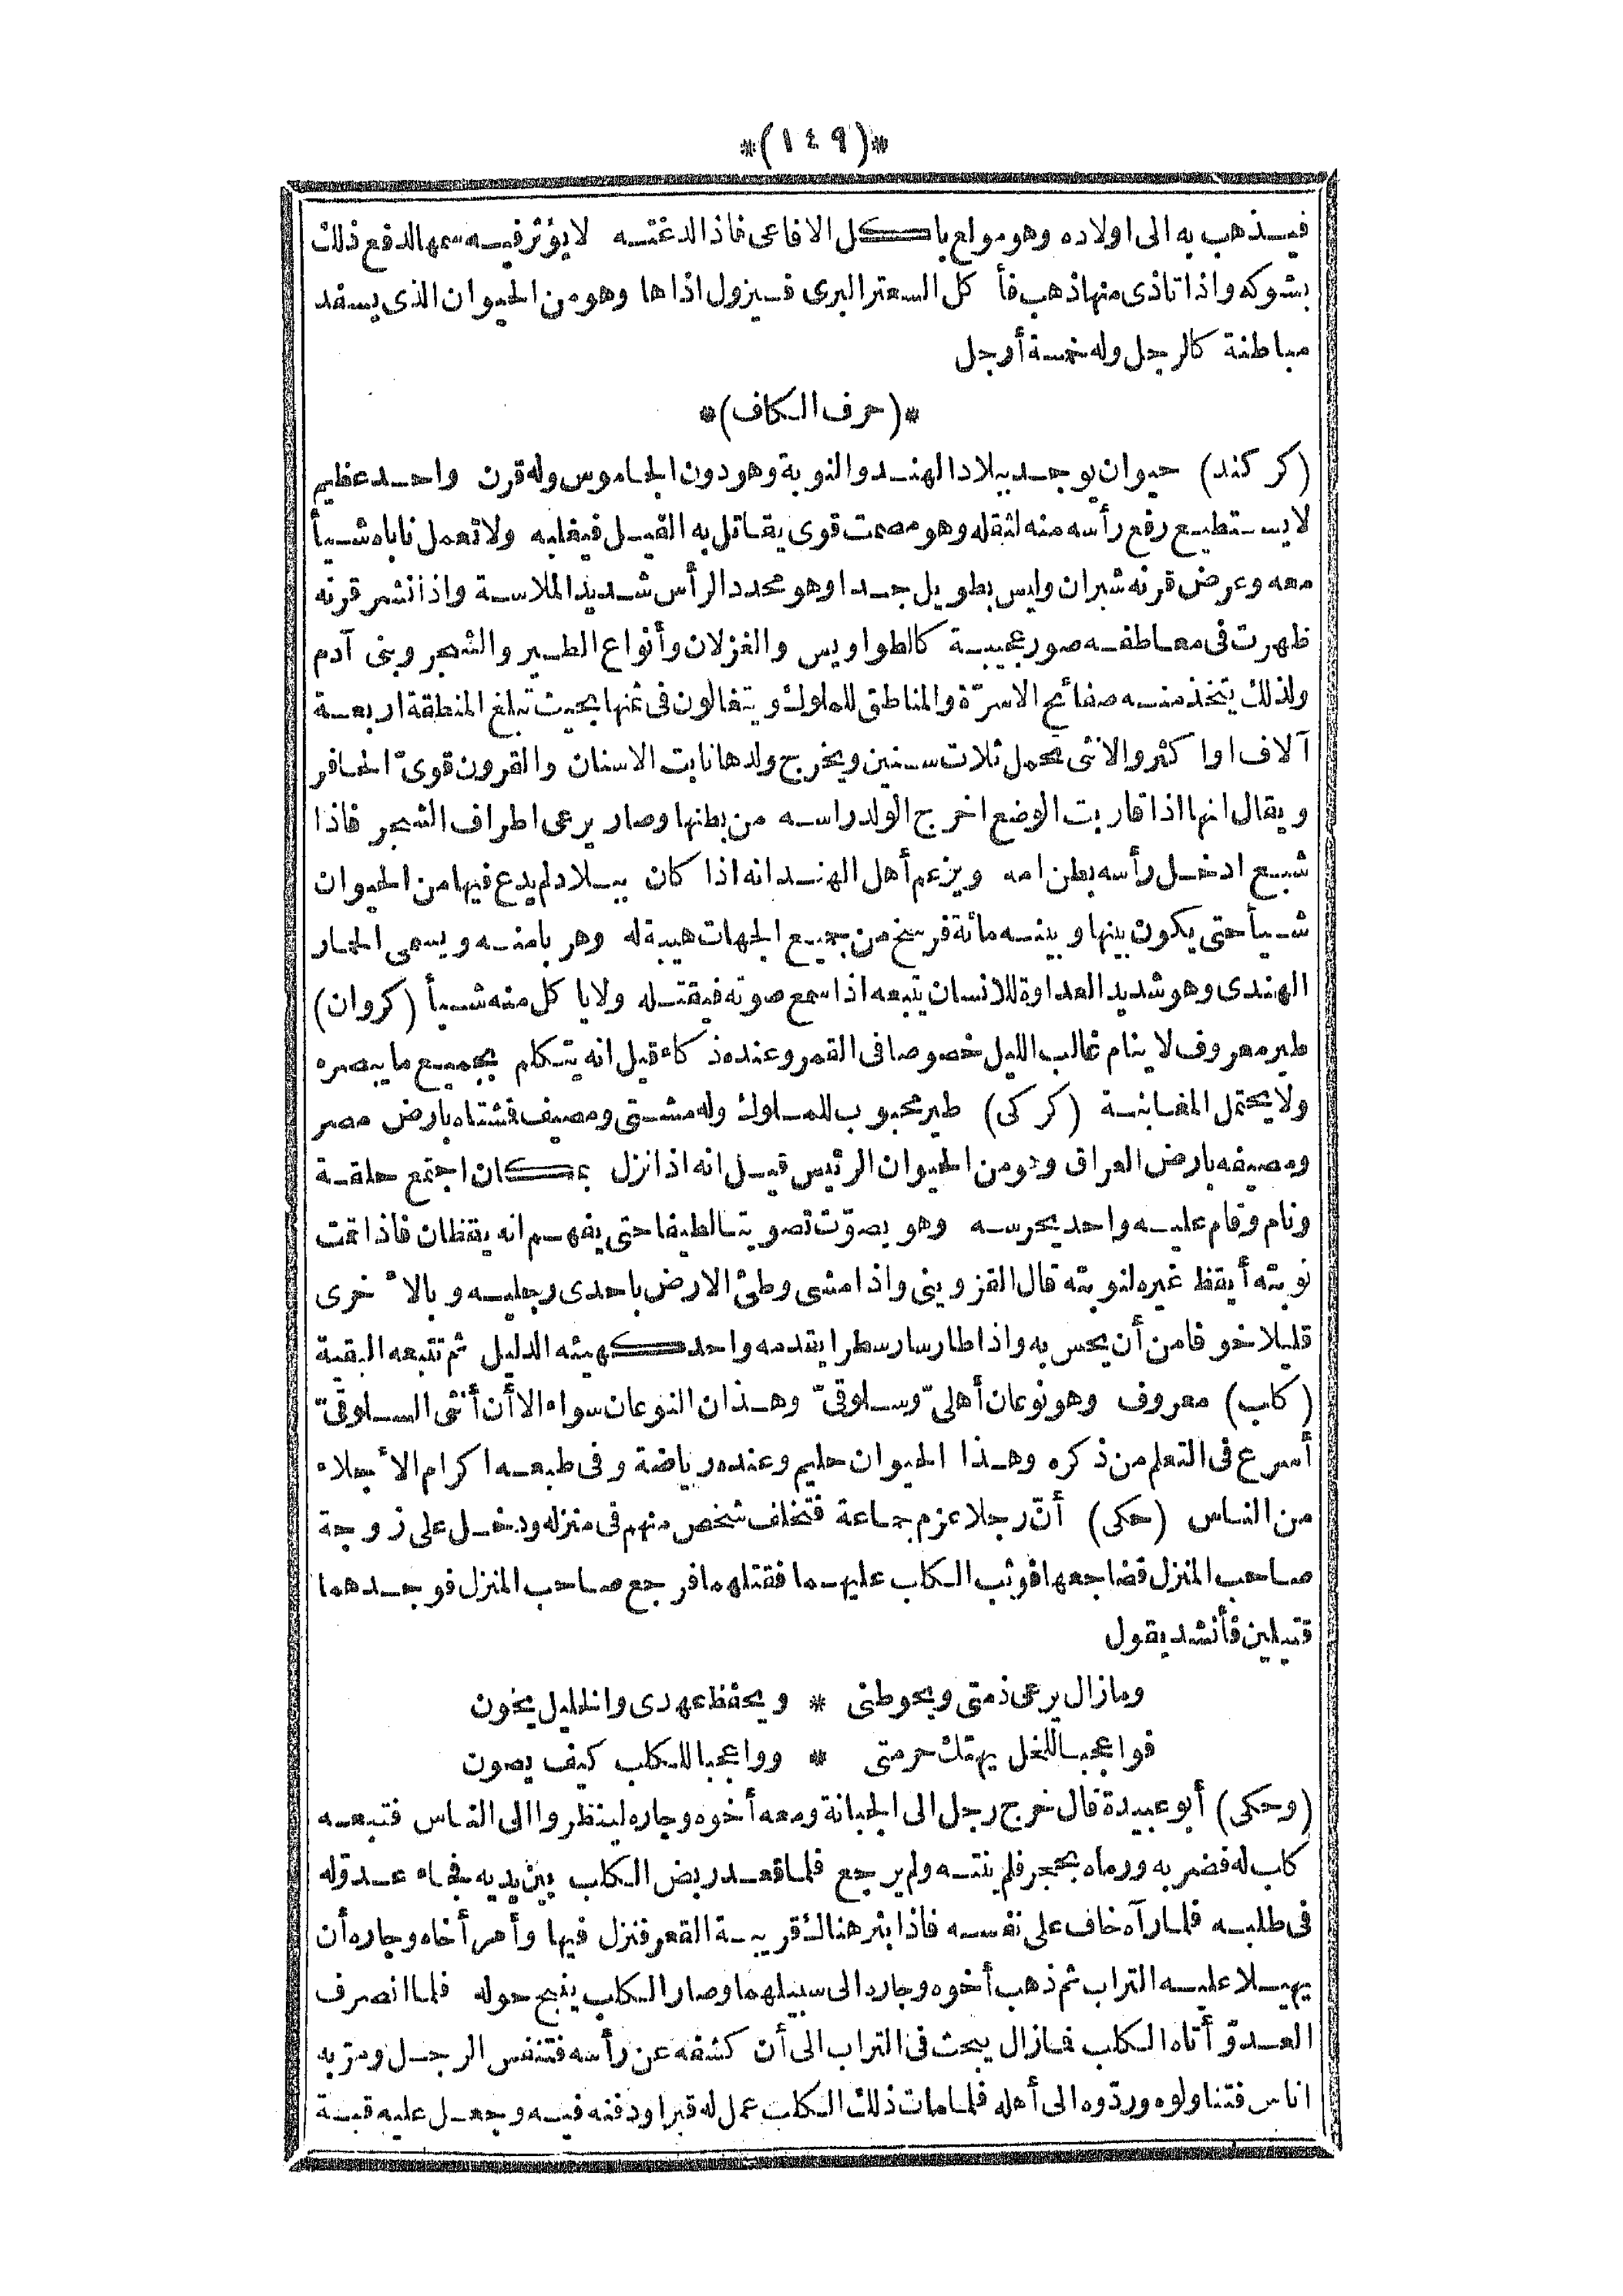 *(١٤٩)*
فيذهب به الى اولاده وهو مولع باكل الافاعى فاذا لدغته لا يؤثر فيه سمها لدفع ذلك
بشوكه واذا تاذى منها ذهب فأكل السعتر البرى فيزول اذاها وهو من الحيوان الذى يسفد
مباطنة كالرجل وله خمسة أرجل
*(حرف الكاف)*
(كركند) حيوان يوجد ببلاد الهند والنوبة وهو دون الجاموس وله قرن واحد عظيم
لا يستطيع رفع رأسه منه لثقله وهو مصمت قوى يقاتل به الفيل فيغلبه ولا تعمل ناباه شيأ
معه وعرض قرنه شبران وليس بطويل جدا وهو محدد الرأس شديد الملاسة واذا نشر قرنه
ظهرت فى معاطفه صور عجيبة كالطواويس والغزلان وأنواع الطير والشجر وبنى آدم
ولذلك يتخذ منه صفائح الاسرّة والمناطق للملوك ويتغالون فى ثمنها بحيث تبلغ المنطقة اربعة
آلاف او اكثر والانثى تحمل ثلاث سنين ويخرج ولدها نابت الاسنان والقرون قوىّ الحافر
ويقال انها اذا قاربت الوضع اخرج الولد راسه من بطنها وصار يرعى اطراف الشجر فاذا
شبع ادخل رأسه بطن امه ويزعم أهل الهند انه اذا كان ببلاد لم يدع فيها من الحيوان
شيأ حتى يكون بينها وبينه مائة فرسخ من جميع الجهات هيبة له وهربا منه ويسمى الحمار
الهندى وهو شديد العداوة للانسان يتبعه اذا سمع صوته فيقتله ولا ياكل منه شيأ (كروان)
طير معروف لا ينام غالب الليل خصوصا فى القمر وعنده ذكاء قيل انه يتكلم بجميع ما يبصره
ولا يحتمل المغابنة (كركى) طير محبوب للملوك وله مشتى ومصيف فشتاه بارض مصر
ومصيفه بارض العراق وهو من الحيوان الرئيس قيل انه اذا نزل بمكان اجتمع حلقة
ونام وقام عليه واحد يحرسه وهو يصوّت تصويتا لطيفا حتى يفهم انه يقظان فاذا تمت
نوبته أيقظ غيره لنوبته قال القزوينى واذا مشى وطئ الارض باحدى رجليه وبالأخرى
قليلا خوفا من أن يحس به واذا طار سار سطرا يقدمه واحد كهيئه الدليل ثم تتبعه البقية
(كلب) معروف وهو نوعان أهلىّ وسلوقىّ وهذان النوعان سواء الا أن أنثى السلوقىّ
أسرع فى التعلم من ذكره وهذا الحيوان حليم وعنده رياضة وفى طبعه اكرام الأجلاء
من الناس (حكى) أنّ رجلا عزم جماعة فتخلف شخص منهم فى منزله ودخل على زوجة
صاحب المنزل فضاجعها فوثب الكلب عليهما فقتلهما فرجع صاحب المنزل فوجدهما
قتيلين فأنشد يقول
وما زال يرعى ذمتى ويحوطنى * ويحفظ عهدى والخليل يخون
فواعجبا للخل يهتك حرمتى * وواعجبا للكلب كيف يصون
(وحكى) أبو عبيدة قال خرج رجل الى الجبانة ومعه أخوه وجاره لينظروا الى الناس فتبعه
كلب له فضربه ورماه بحجر فلم ينته ولم يرجع فلما قعد ربض الكلب بين يديه فجاء عدوّ له
فى طلبه فلما رآه خاف على نفسه فاذا بئر هناك قريبة القعر فنزل فيها وأمر أخاه وجاره أن
يهيلا عليه التراب ثم ذهب أخوه وجاره الى سبيلهما وصار الكلب ينبح حوله فلما انصرف
العدوّ أتاه الكلب فما زال يبحث فى التراب الى أن كشفه عن رأسه فتنفس الرجل ومرّ به
اناس فتناولوه وردّوه الى أهله فلما مات ذلك الكلب عمل له قبرا ودفنه فيه وجعل عليه قبة